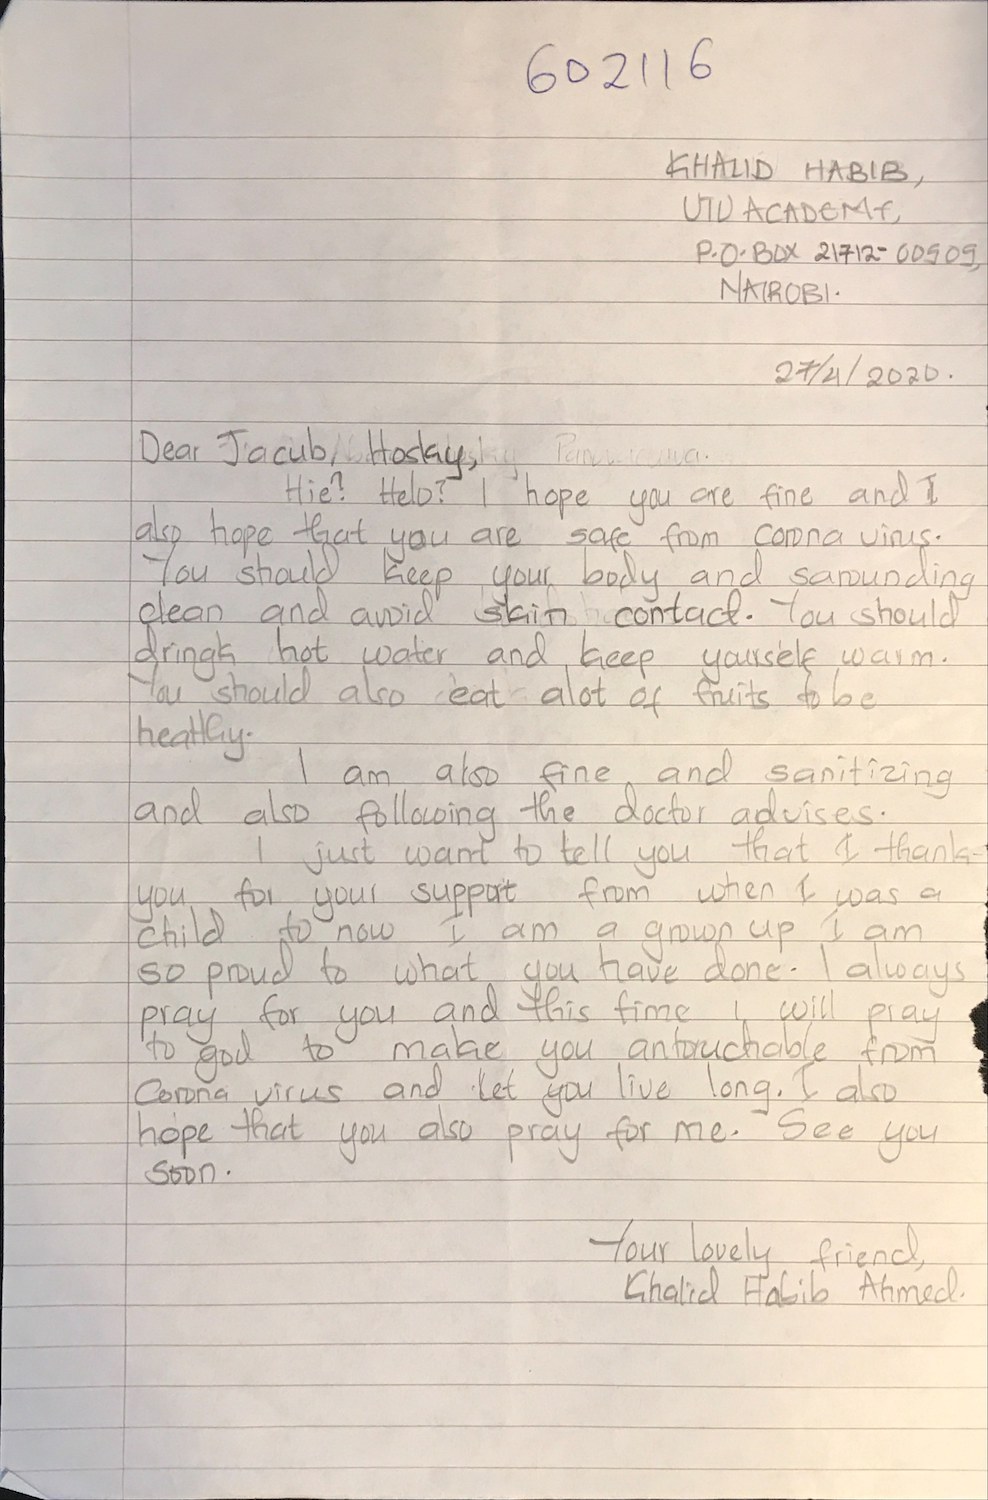 602116
KHALID HABIB,
UTU ACADEMY,
P.O. BOX 21712-00505,
NAIROBI.
27/4/2020.
Dear Jacub, Hoskay,
Hie? Helo? I hope you are fine and I
also hope that you are safe from corona virus.
You should keep your body and sarounding
clean and avoid skin contact. You should
dringk hot water and keep yourself warm.
You should also eat alot of fruits to be
heatlhy.
I am also fine and sanitizing
and also following the doctor advises.
I just want to tell you that I thank-
you for your support from when I was a
child to now I am a grown up I am
so proud to what you have done. I always
pray for you and this time I will pray
to god to make you antouchable from
Corona virus and let you live long. I also
hope that you also pray for me. See you
soon.
Your lovely friend,
Khalid Habib Ahmed.